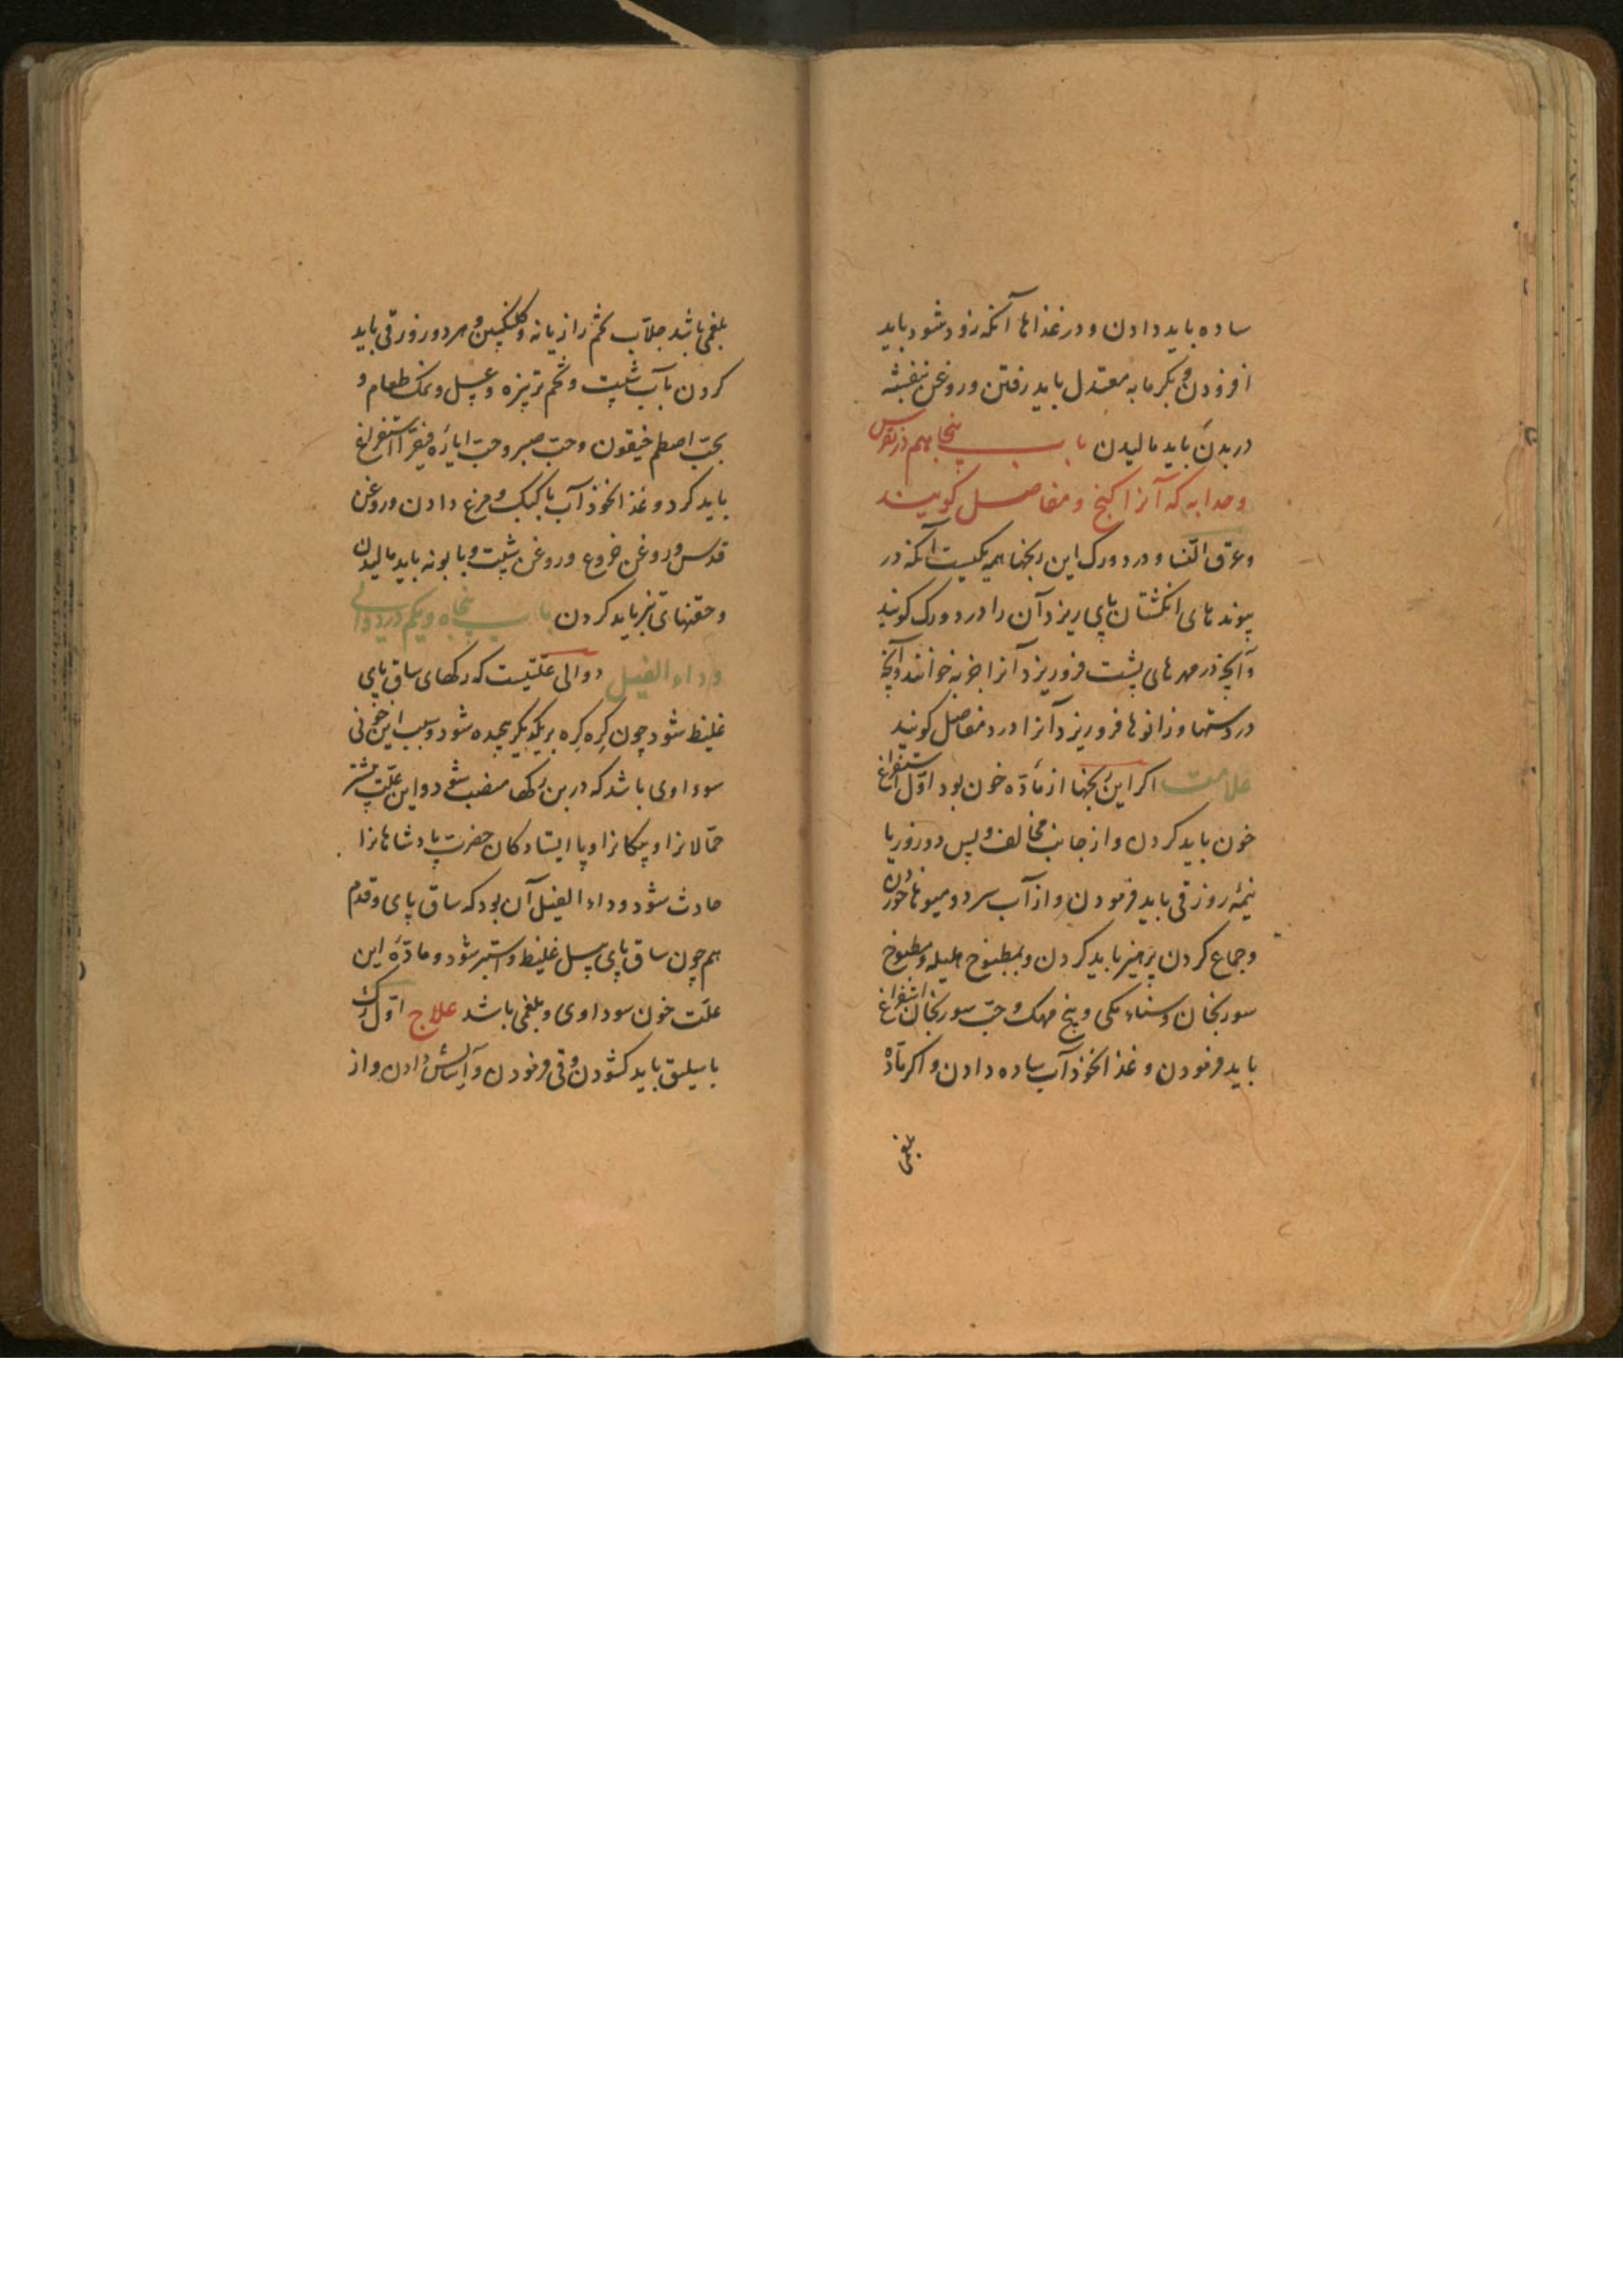 ساده باید دادن و در غذاها آنکه زود شود باید
افزودن و بکرمابه معتدل باید رفتن و روغن بنفشه
در بدن باید مالیدن باب پنجاهم در نقرس
و حدابه که آنرا کنج و مفاصل کویند
و عرق النسا و درد ورک این رنجها همه یکیست آنکه در
پیوندهای انکشتان پای ریزد آن را درد ورک کویند
و آنچه در مهرهای پشت فرو ریزد آنرا خوانند و آنچه
در دستها و زانوها فرو ریزد آنرا درد مفاصل کویند
علامت اکر این رنجها از مادّه خون بود اوّل استفراغ
خون باید کردن و از جانب مخالف و پس دو روز یا
نیمهٔ روز قی باید فرمودن و از آب سرد و میوها خوردن
و جماع کردن پرهیز باید کردن و بمطبوخ هلیله و مطبوخ
سورنجان و سناء مکی و بیخ مهک و حبّ سورنجان استفراغ
باید فرمودن و غذا نخوذآب ساده دادن و اکر مادّه
بلغمی
بلغمی باشد جلاّب تخم رازیانه و کلنکبین و هر دو روز قی باید
کردن بآب شبت و تخم ترب‌زه و عسل و نمک طعام و
بحبّ اصطمخیقون و حبّ صبر و حبّ ایارهٔ فیقرا استفراغ
باید کرد و غذا نخوذآب با کبک و مرغ دادن و روغن
قدس و روغن خروع و روغن شبت و بابونه باید مالیدن
و حقنهای تیز باید کردن باب پنجاه و یکم در دوالی
و داء الفیل دوالی علّتیست که رکهای ساق پای
غلیظ شود چون کره کره بر یکدیکر پیچیده شود و سبب این خونی
سوداوی باشد که درین رکها منصب شود و این علّت بیشتر
حمّالانرا و پیکانرا و پا ایستادکان حضرت پادشاهانرا
حادث شود و داء الفیل آن بود که ساق پای و قدم
هم چون ساق پای پیل غلیظ و استبر شود و مادّهٔ این
علّت خون سوداوی و بلغمی باشد علاج اوّل رک
باسلیق باید کشودن و قی فرمودن و آسایش دادن و از